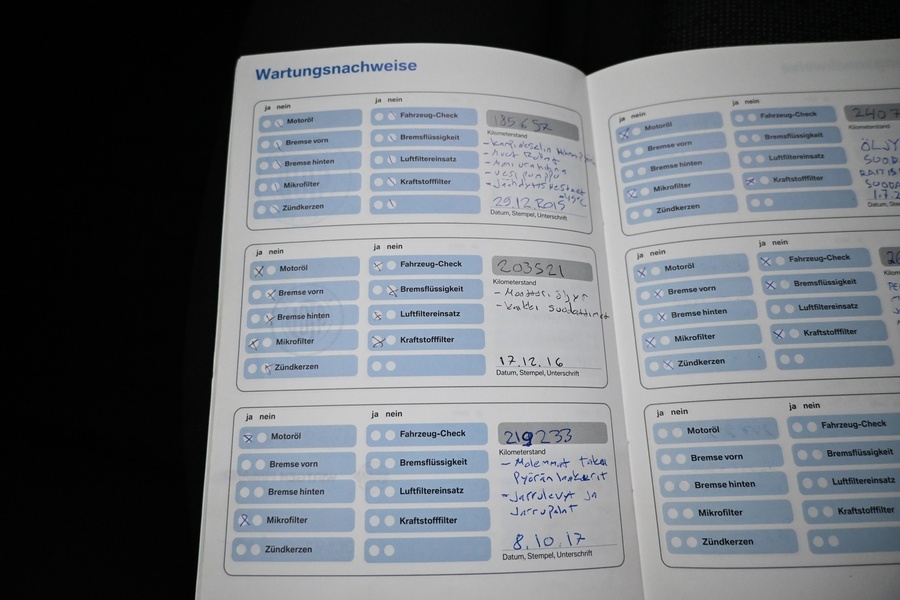 Wartungsnachweise
ja nein
Motoröl
Bremse vorn
Bremse hinten
Mikrofilter
Zündkerzen
ja nein
Fahrzeug-Check
Bremsflüssigkeit
Luftfiltereinsatz
Kraftstofffilter
185652
Kilometerstand
29.12.2015
Datum, Stempel, Unterschrift
ja nein
Motoröl
Bremse vorn
Bremse hinten
Mikrofilter
Zündkerzen
ja nein
Fahrzeug-Check
Bremsflüssigkeit
Luftfiltereinsatz
Kraftstofffilter
203521
Kilometerstand
- Moottori öljyt
- kaikki suodattimet
17.12.16
Datum, Stempel, Unterschrift
ja nein
Motoröl
Bremse vorn
Bremse hinten
Mikrofilter
Zündkerzen
ja nein
Fahrzeug-Check
Bremsflüssigkeit
Luftfiltereinsatz
Kraftstofffilter
219233
Kilometerstand
- Molemmat taka
Pyörän laakerit
- Jarrulevyt ja
Jarrupalat
8.10.17
Datum, Stempel, Unterschrift
ja nein
Motoröl
Bremse vorn
Bremse hinten
Mikrofilter
Zündkerzen
ja nein
Fahrzeug-Check
Bremsflüssigkeit
Luftfiltereinsatz
Kraftstofffilter
2407
Kilometerstand
ÖLJY
SUOD
SUODA
1.7.2
Datum, Stem
ja nein
Motoröl
Bremse vorn
Bremse hinten
Mikrofilter
Zündkerzen
ja nein
Fahrzeug-Check
Bremsflüssigkeit
Luftfiltereinsatz
Kraftstofffilter
Kilom
Datum,
ja nein
Motoröl
Bremse vorn
Bremse hinten
Mikrofilter
Zündkerzen
ja nein
Fahrzeug-Check
Bremsflüssigkeit
Luftfiltereinsatz
Kraftstofffilter